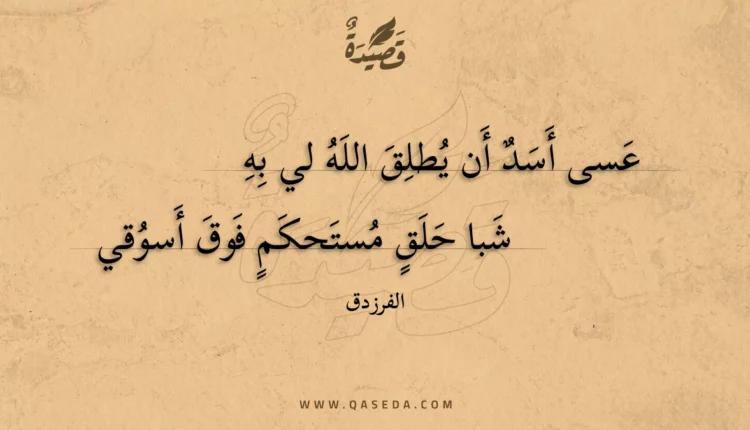 قَصِيدَةٌ
عَسى أَسَدٌ أَن يُطلِقَ اللَهُ لي بِهِ
شَبا حَلَقٍ مُستَحكَمٍ فَوقَ أَسوُقي
الفرزدق
WWW.QASEDA.COM